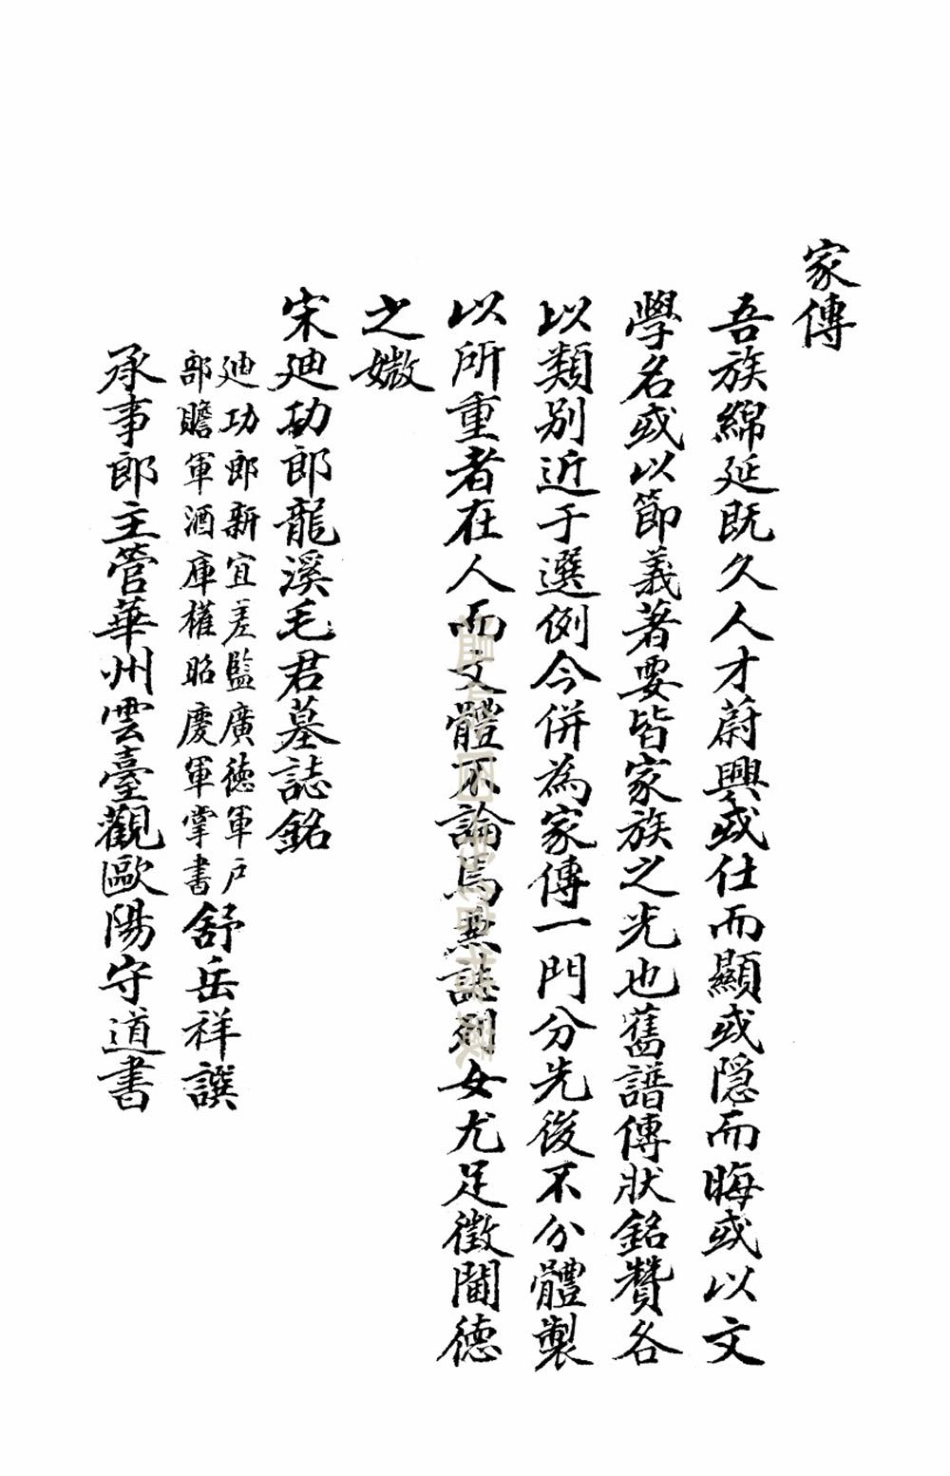 家傳
吾族綿延既久人才蔚興或仕而顯或隠而晦或以文
學名或以節義著要皆家族之光也舊譜傳狀銘贊各
以類别近于選例今併為家傳一門分先後不分體製
以所重者在人而文體不論焉至誌列女尤足徵閫德
之媺
宋廸功郎龍溪毛君墓誌銘
廸功郎新宜差監廣德軍户
部贍軍酒庫權昭慶軍掌書
舒岳祥譔
承事郎主管華州雲臺觀歐陽守道書